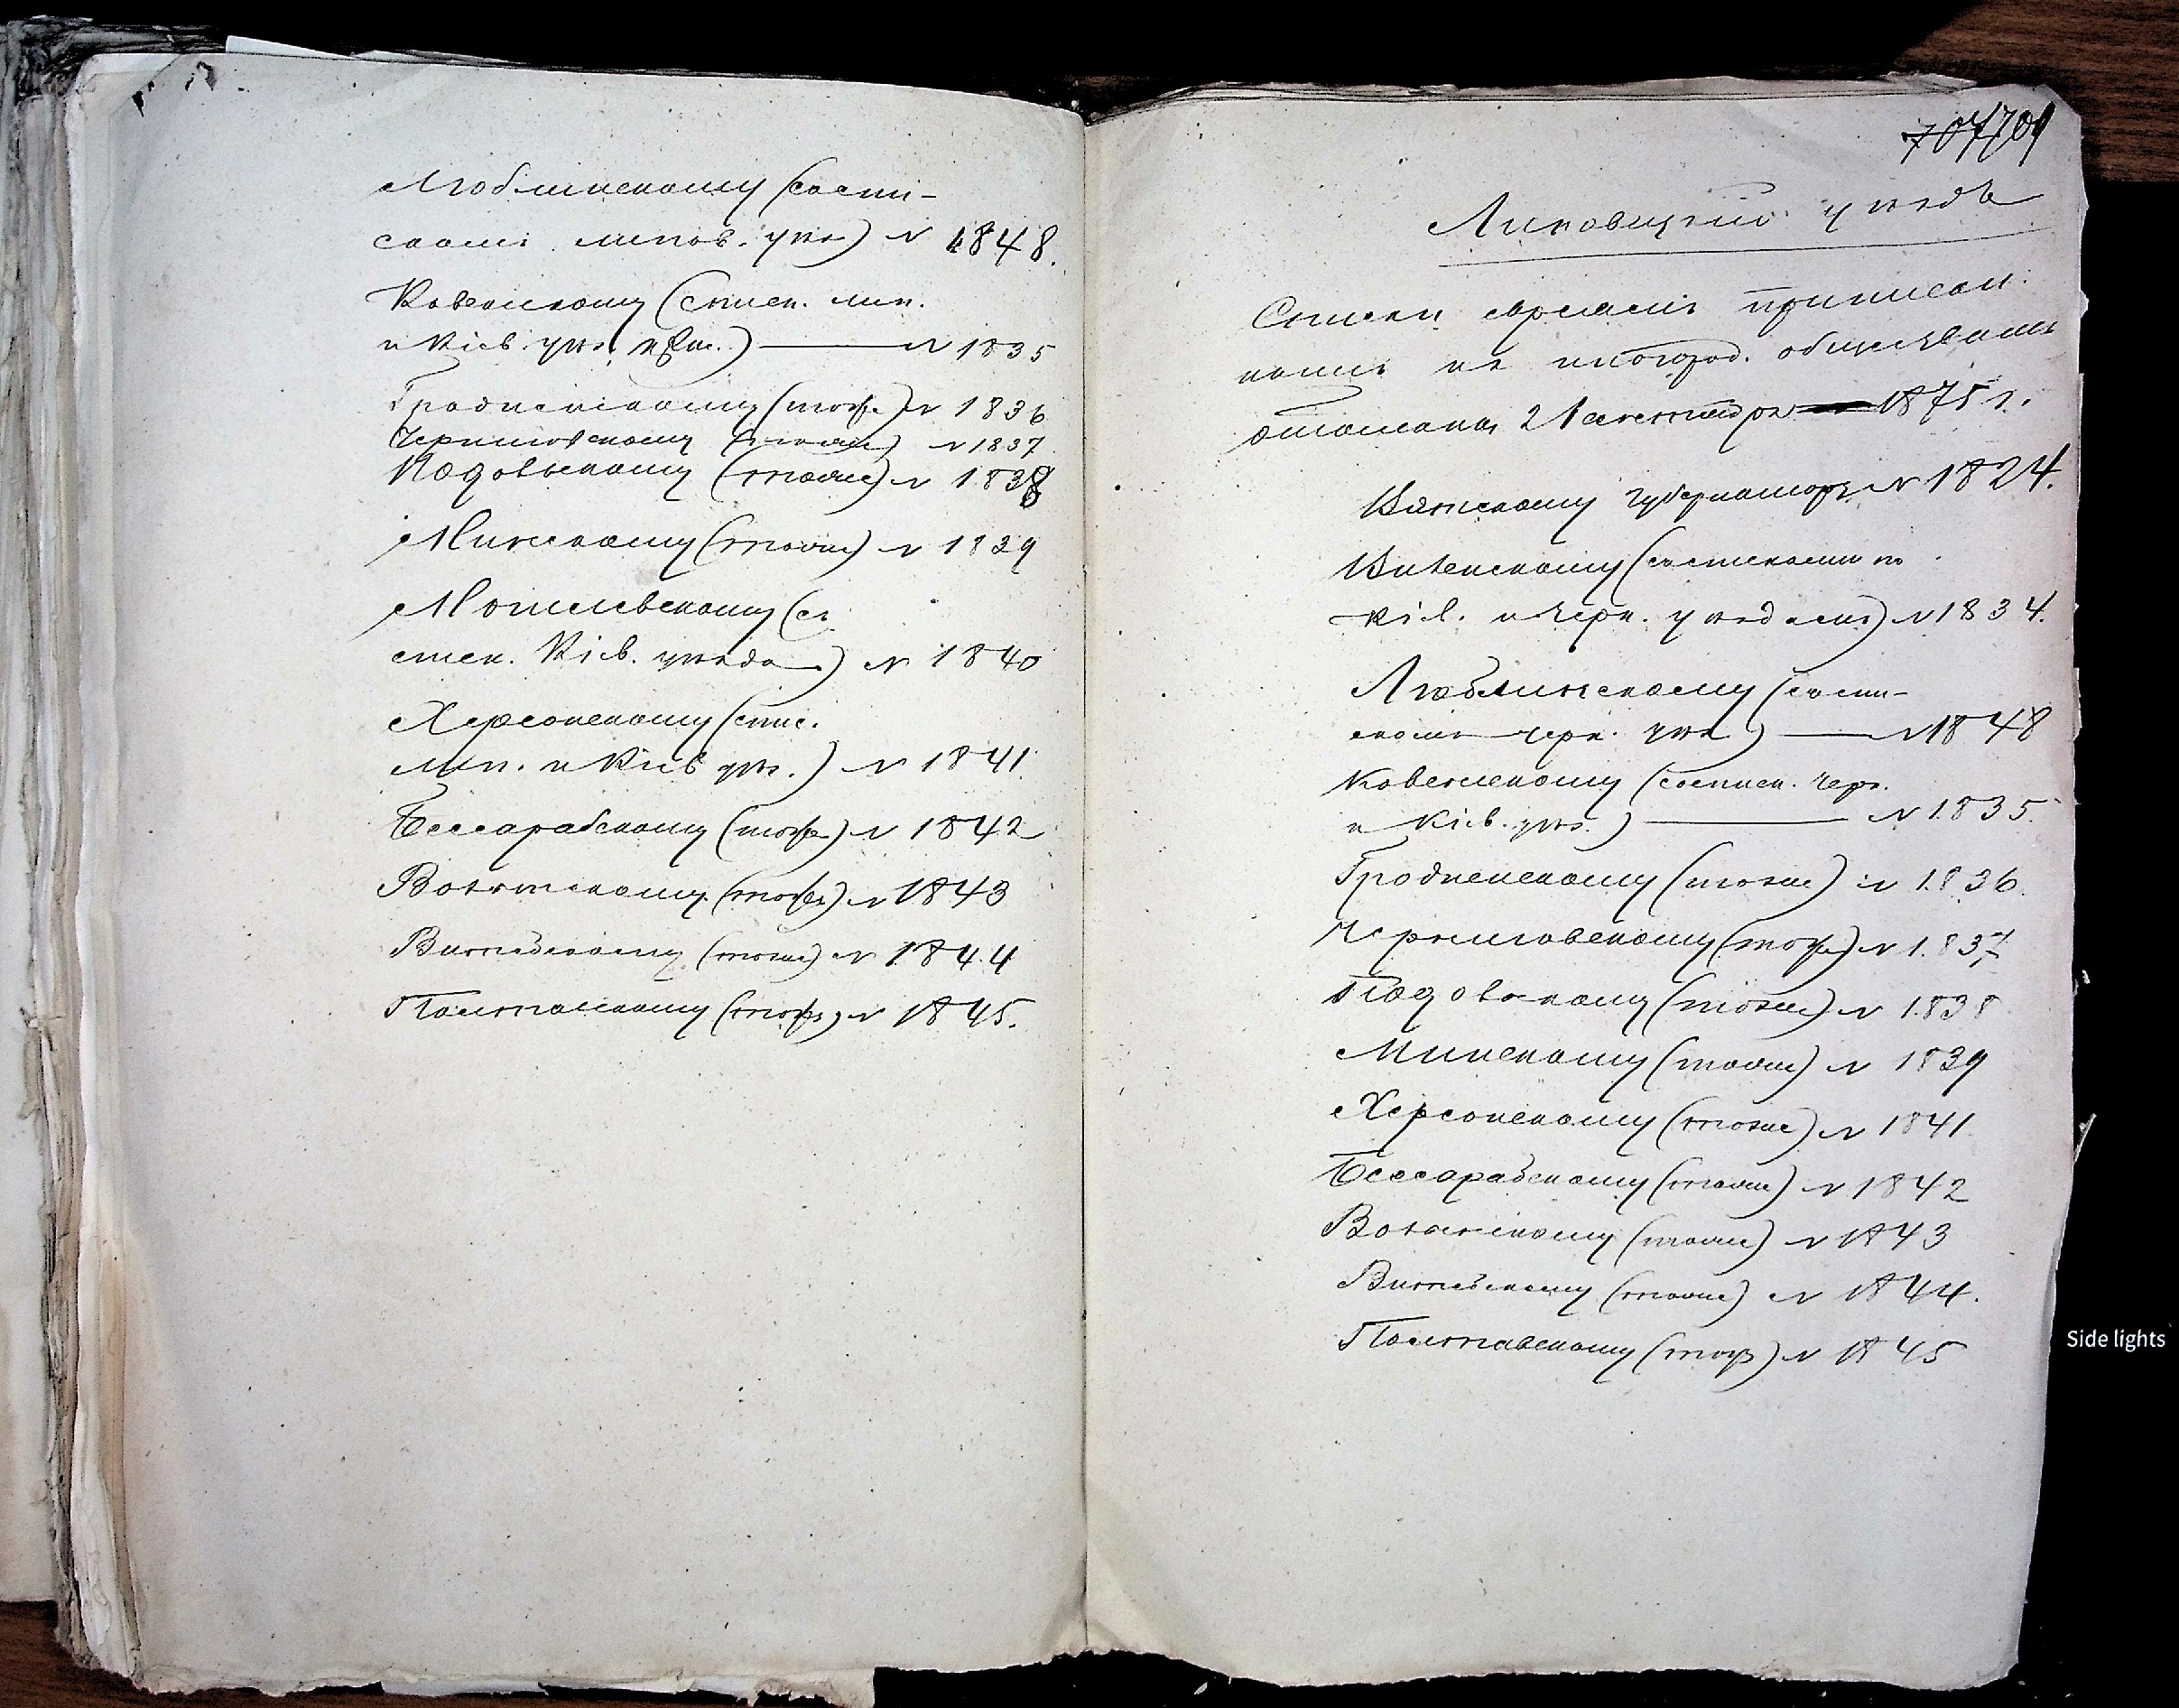 Люблинскому (съ спи-
скомъ липов. уѣз) N 1848.
Ковенскому (списк. лип.
и Кіев. уѣз. ) N 1835
Гродненскому (тоже) N 1836
Черниговскому (тоже) N 1837
Подольскому (тоже) N 1838
Минскому (тоже) N 1839
Могилевскому (съ
списк. Кіев. уѣзда) N 1840
Херсонскому (спис.
лип. и Кіев уѣз.) N 1841
Бессарабскому (тоже) N 1842
Волынскому (тоже) N 1843
Витебскому (тоже) N 1844
Полтавскому (тоже) N 1845.
707 701
Липовецкій уѣздъ
Списки евреямъ приписан.
нымъ къ иногород. обществамъ
отосланы 21 октября 1875 г.
Губернатору N 1824.
Виленскому (съ списками по
Кіев. и Черк. уѣздамъ) N 1834.
Люблинскому (съ спи-
скомъ Черк. уѣз) N 1848
Ковенскому (съ списк. Черк.
и Кіев. уѣз.) N 1835.
Гродненскому (тоже) N 1836.
Черниговскому (тоже) N 1837
Подольскому (тоже) N 1838
Минскому (тоже) N 1839
Херсонскому (тоже) N 1841
Бессарабскому (тоже) N 1842
Волынскому (тоже) N 1843
Витебскому (тоже) N 1844.
Полтавскому (тоже) N 1845
Side lights